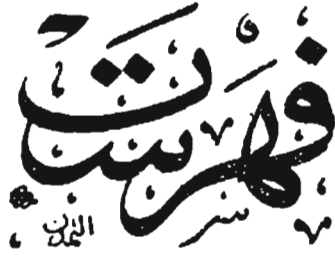 فهرست